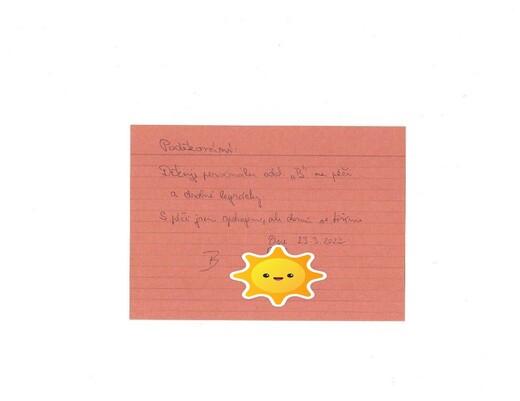 Poděkování:
Děkuji personálu odd. „B" za péči
a drobné legrácky
S péčí jsem spokojena, ale domů se těším
Dne 23.3.2022
B